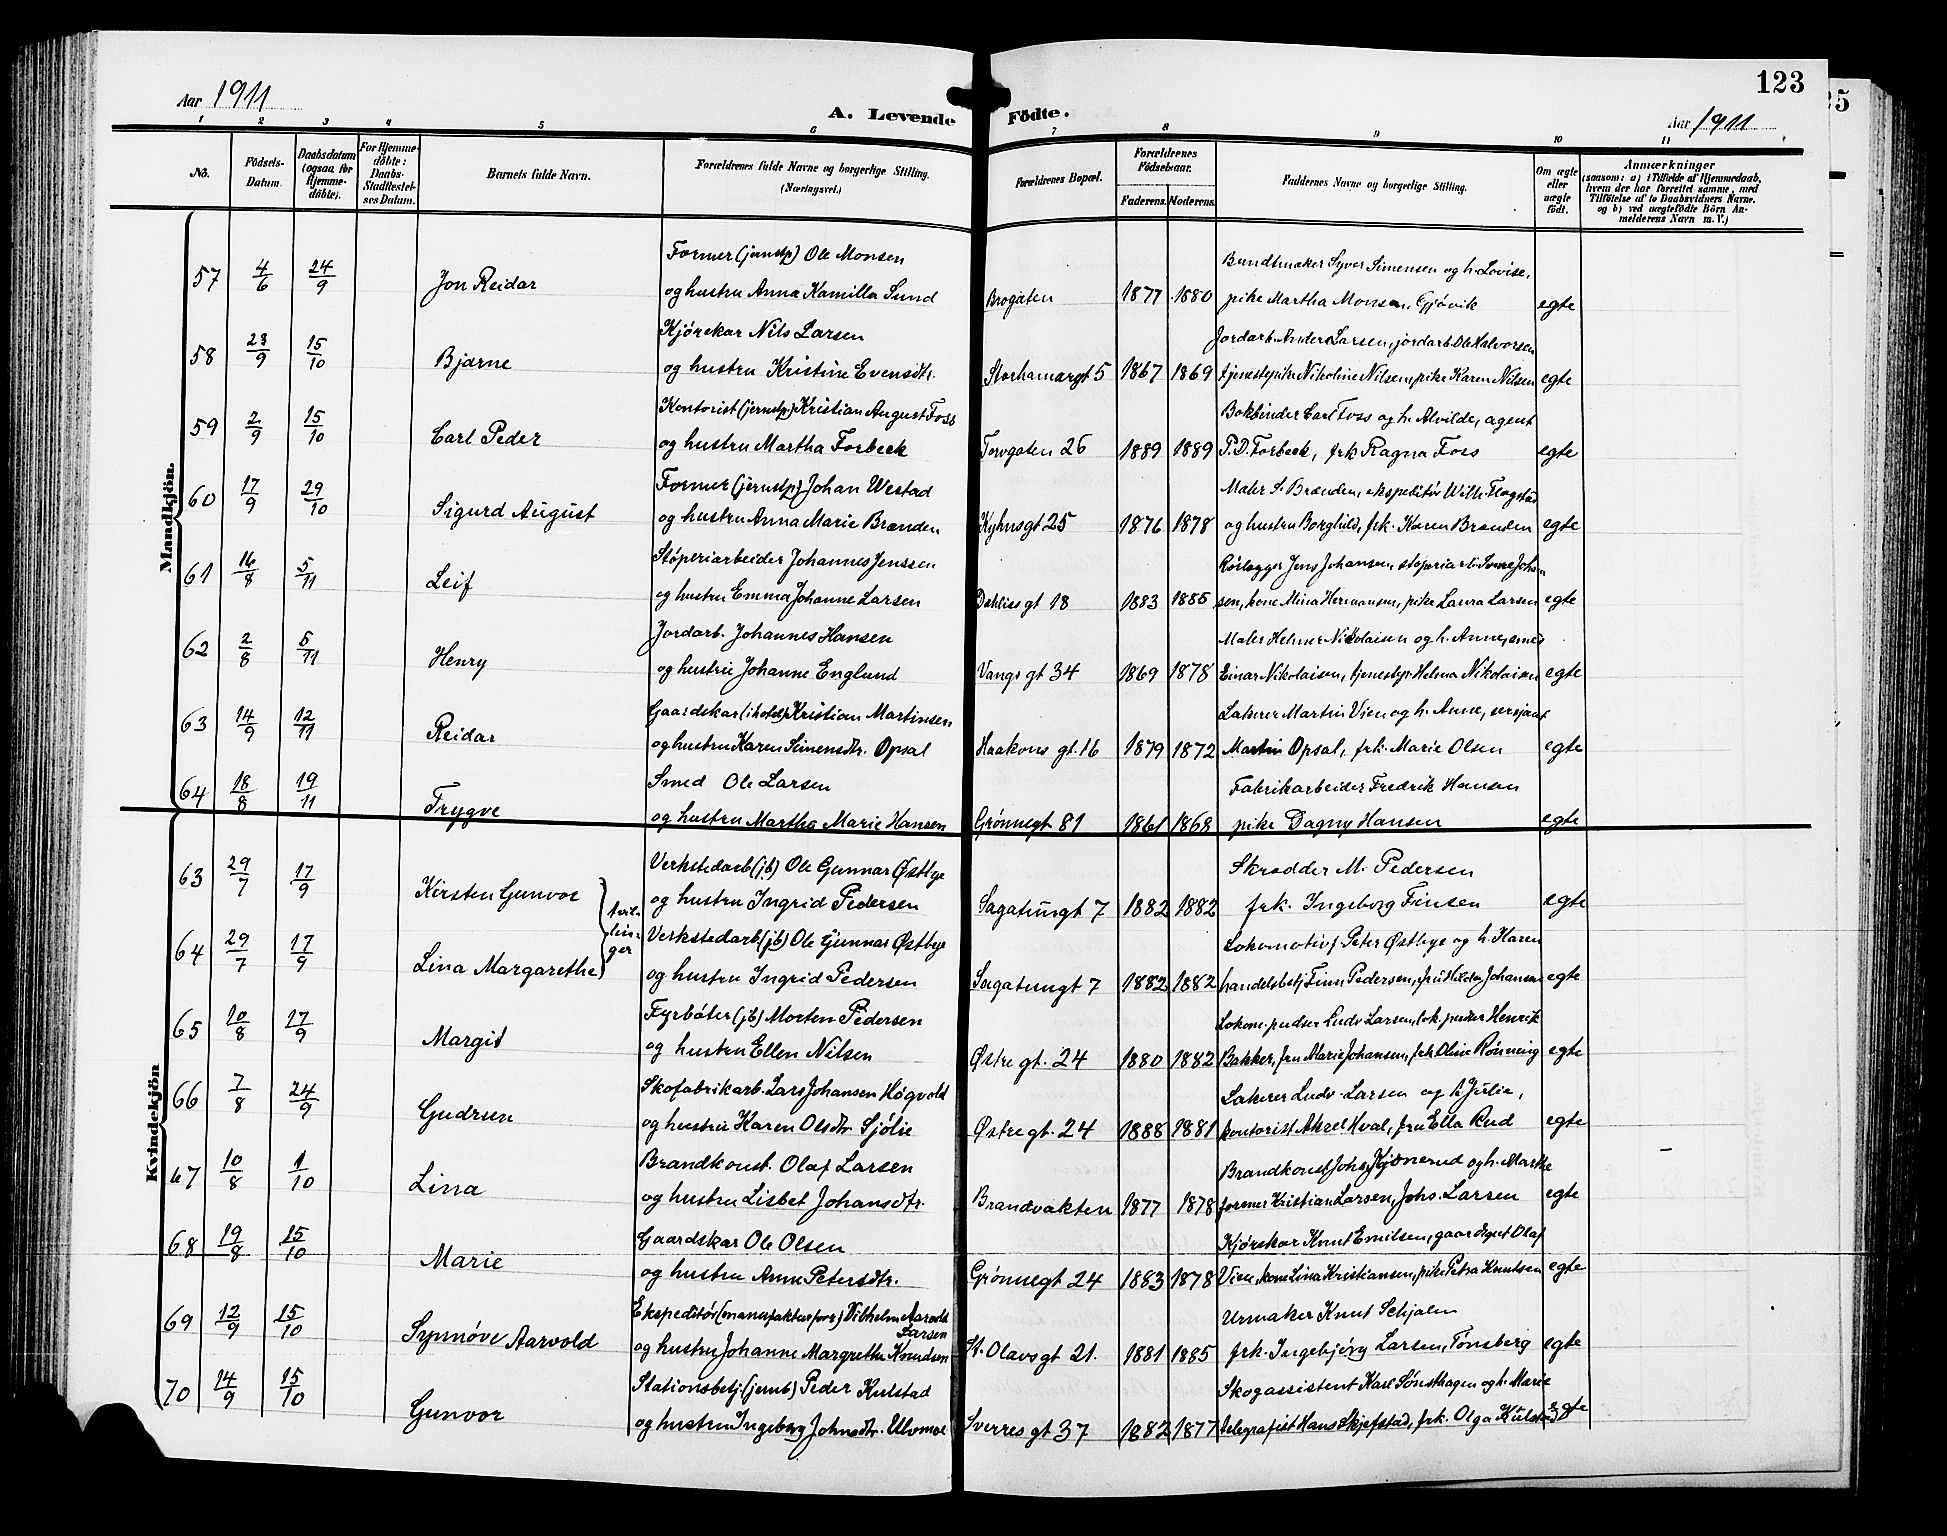 123
25
Aar 1911
A. Levende Födte.
Aar 1911
1 2 3 4 5 6 7 8 9 10 11
No.
Födsels-Datum.
Daabsdatum (ogsaa for Hjemme-döbte).
For Hjemme-döbte: Daabs-Stadfæstel-ses Datum.
Barnets fulde Navn.
Forældrenes fulde Navne og borgerlige Stilling. (Næringsvei.)
Forældrenes Bopæl.
Forældrenes Födselsaar.
Faderens. Moderens.
Faddernes Navne og borgerlige Stilling.
Om ægte eller uægte födt.
Anmærkninger
(saasom: a) i Tilfælde af Hjemmedaab,
hvem der har forrettet samme, med
Tilföielse af to Daabsvidners Navne.
og b) ved uægtefödte Börn An-
melderens Navn m. V.)
Mandkjön.
Former (jernstp) Ole Monsen Bundtmaker Syver Simensen og h. Lovise,
57 4/6 24/9 Jon Reidar og hustru Anna Kamilla Sund Brogaten 1877 1880 pike Martha Monsen, Gjøvik egte
Kjørekar Nils Larsen Jordarb. Anders Larsen, jordarb Ole Halvorsen
58 23/9 15/10 Bjarne og hustru Kristine Evensdtr. Storhamargt 5 1867 1869 tjenestepike Nikoline Nilsen, pike Karen Nilsen egte
Kontorist (jernstp) Kristian August Foss Bokbinder Carl Foss og h. Alvilde, agent
59 2/9 15/10 Carl Peder og hustru Martha Forbeck Torvgaten 26 1889 1889 P.D. Forbeck, frk Ragna Foss egte
Former (jernstp) Johan Westad Maler S. Brænden, ekspeditør Wilh. Flagstad
60 17/9 29/10 Sigurd August og hustru Anna Marie Brænden Kyhnsgt 25 1876 1878 og hustru Borghild, frk. Karen Brænden egte
Støperiarbeider Johannes Jenssen Rørlægger Jens Johansen, støperiarb. Johan
61 16/8 5/11 Leif og hustru Emma Johanne Larsen gt 18 1883 1885 sen, kone Mina Hermansen, pike Laura Larsen egte
Jordarb. Johannes Hansen Maler Helmer Nikolaisen og h. Anne, smed
62 2/8 5/11 Henry og hustru Johanne Englund Vangsgt 34 1869 1878 Einar Nikolaisen, tjenestep. Helma Nikolaisen egte
Gaardskar (i hotel) Kristian Martinsen Lakerer Martin Vien og h. Anne, sersjant
63 14/9 12/11 Reidar og hustru Karen Simensdtr. Opsal Haakons gt. 16 1879 1872 Martin Opsal, frk. Marie Olsen egte
Smed Ole Larsen Fabrikarbeider Fredrik Hansen
64 18/8 19/11 Trygve og hustru Martha Marie Hansen Grønnegt 81 1861 1868 pike Dagny Hansen egte
Kvindekjön
Verkstedarb (jb) Ole Gunnar Østbye Skrædder M. Pedersen
63 29/7 17/9 Kirsten Gunvor tvil-lin-ger og hustru Ingrid Pedersen Sagatungt 7 1882 1882 frk. Ingeborg Finsen egte
Verkstedarb (jb) Ole Gunnar Østbye Lokomotivf Peter Østbye og h. Karen
64 29/7 17/9 Lina Margarethe og hustru Ingrid Pedersen Sagatungt 7 1882 1882 handelsbetj Finn Pedersen, fru Hilda Johansen egte
Fyrbøter (jb) Morten Pedersen Lokom. pudser Ludv Larsen, lok. pudser Henrik
65 10/8 17/9 Margit og hustru Ellen Nilsen Østre gt. 24 1880 1882 Bakker, fru Marie Johansen, frk Oline Rønning egte
Skofabrikarb. Lars Johansen Høgvold Lakerer Ludv. Larsen og h Julie,
66 7/8 24/9 Gudrun og hustru Karen Olsdtr. Sjølie Østre gt. 24 1888 1881 kontorist Aksel Hval, fru Ella Rud egte
Brandkonst. Olaf Larsen Brandkonst Johs. Kjønerud og h. Marthe
67 10/8 1/10 Lina og hustru Lisbet Johansdtr. Brandvakten 1877 1878 former Kristian Larsen, Johs. Larsen egte
Gaardskar Ole Olsen Kjørekar Knut Emilsen, gaardgut Olaf
68 19/8 15/10 Marie og hustru Anne Petersdtr. Grønnegt 24 1883 1878 Vien, kone Lina Kristiansen, pike Petra Knutsen egte
Ekspeditør (manufakturforr) Vilhelm Aarvold Larsen Urmaker Knut Schjølen
69 12/9 15/10 Synnøve Aarvold og hustru Johanne Margrethe Knudsen St. Olavsgt 21. 1881 1885 frk. Ingebjørg Larsen, Tønsberg egte
Stationsbetj. (jernb) Peder Kulstad Skogassistent Karl Sønsthagen og h. Marie
70 14/9 15/10 Gunvor og hustru Ingeborg Johnsdtr. Ulvmoe Sverres gt 37 1882 1877 telegrafist Hans Skjefstad, frk. Olga Kulstad egte